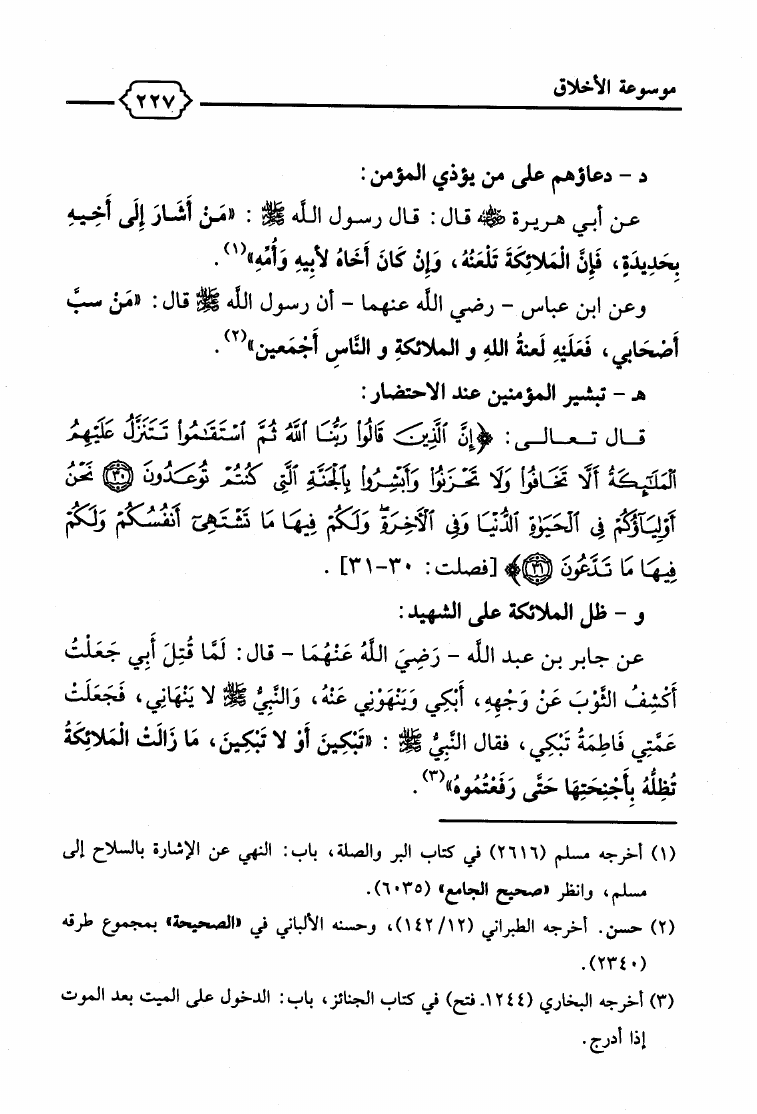 موسوعة الأخلاق
٢٢٧
د - دعاؤهم على من يؤذي المؤمن:
عن أبي هريرة ﷺ قال: قال رسول الله ﷺ: «مَنْ أَشَارَ إِلَى أَخِيهِ
بِحَدِيدَةٍ، فَإِنَّ الْمَلائِكَةَ تَلْعَنُهُ، وَإِنْ كَانَ أَخَاهُ لأَبِيهِ وَأُمِّهِ»(١).
وعن ابن عباس - رضي الله عنهما - أن رسول الله ﷺ قال: «مَنْ سبَّ
أَصْحَابي، فَعَلَيْهِ لَعنةُ اللهِ و الملائكةِ و النَّاسِ أَجْمَعين»(٢).
هـ - تبشير المؤمنين عند الاحتضار:
قال تعالى: ﴿إِنَّ ٱلَّذِينَ قَالُوا۟ رَبُّنَا ٱللَّهُ ثُمَّ ٱسْتَقَٰمُوا۟ تَتَنَزَّلُ عَلَيْهِمُ
ٱلْمَلَٰٓئِكَةُ أَلَّا تَخَافُوا۟ وَلَا تَحْزَنُوا۟ وَأَبْشِرُوا۟ بِٱلْجَنَّةِ ٱلَّتِى كُنتُمْ تُوعَدُونَ ٣٠ نَحْنُ
أَوْلِيَآؤُكُمْ فِى ٱلْحَيَوٰةِ ٱلدُّنْيَا وَفِى ٱلْءَاخِرَةِ ۖ وَلَكُمْ فِيهَا مَا تَشْتَهِىٓ أَنفُسُكُمْ وَلَكُمْ
فِيهَا مَا تَدَّعُونَ ٣١﴾ [فصلت: ٣٠-٣١].
و - ظل الملائكة على الشهيد:
عن جابر بن عبد الله - رَضِيَ اللَّهُ عَنْهُمَا - قال: لَمَّا قُتِلَ أَبِي جَعَلْتُ
أَكْشِفُ الثَّوْبَ عَنْ وَجْهِهِ، أَبْكِي وَيَنْهَوْنِي عَنْهُ، وَالنَّبِيُّ ﷺ لا يَنْهَانِي، فَجَعَلَتْ
عَمَّتِي فَاطِمَةُ تَبْكِي، فقال النَّبِيُّ ﷺ: «تَبْكِينَ أَوْ لا تَبْكِينَ، مَا زَالَتْ الْمَلائِكَةُ
تُظِلُّهُ بِأَجْنِحَتِهَا حَتَّى رَفَعْتُمُوهُ»(٣).
(١) أخرجه مسلم (٢٦١٦) في كتاب البر والصلة، باب: النهي عن الإشارة بالسلاح إلى
مسلم، وانظر «صحيح الجامع» (٦٠٣٥).
(٢) حسن. أخرجه الطبراني (١٤٢/١٢)، وحسنه الألباني في «الصحيحة» بمجموع طرقه
(٢٣٤٠).
(٣) أخرجه البخاري (١٢٤٤ـ فتح) في كتاب الجنائز، باب: الدخول على الميت بعد الموت
إذا أدرج.